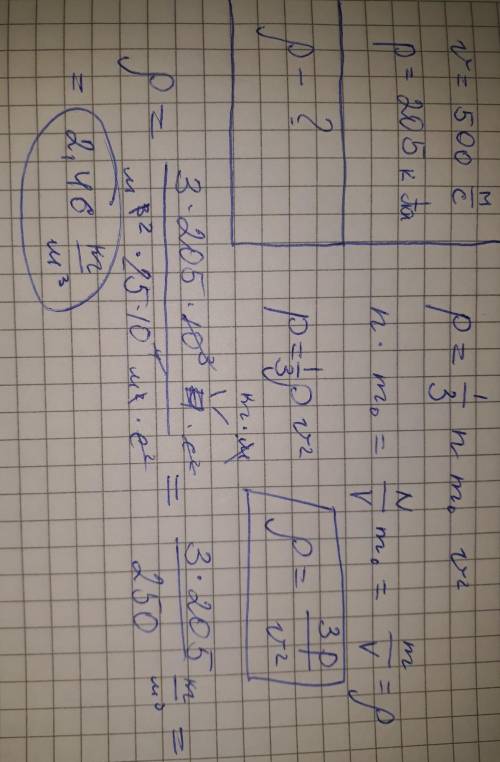 v = 500 м/с
p = 205 кПа
ρ - ?
p = 1/3 n m₀ v²
n · m₀ = N/V m₀ = m/V = ρ
p = 1/3 ρ v²
ρ = 3p/v²
ρ = 3 · 205 · 10³ кг · м · с² / м · с² · 25 · 10⁴ м² · с² = 3 · 205 / 250 кг/м³ =
= 2,46 кг/м³